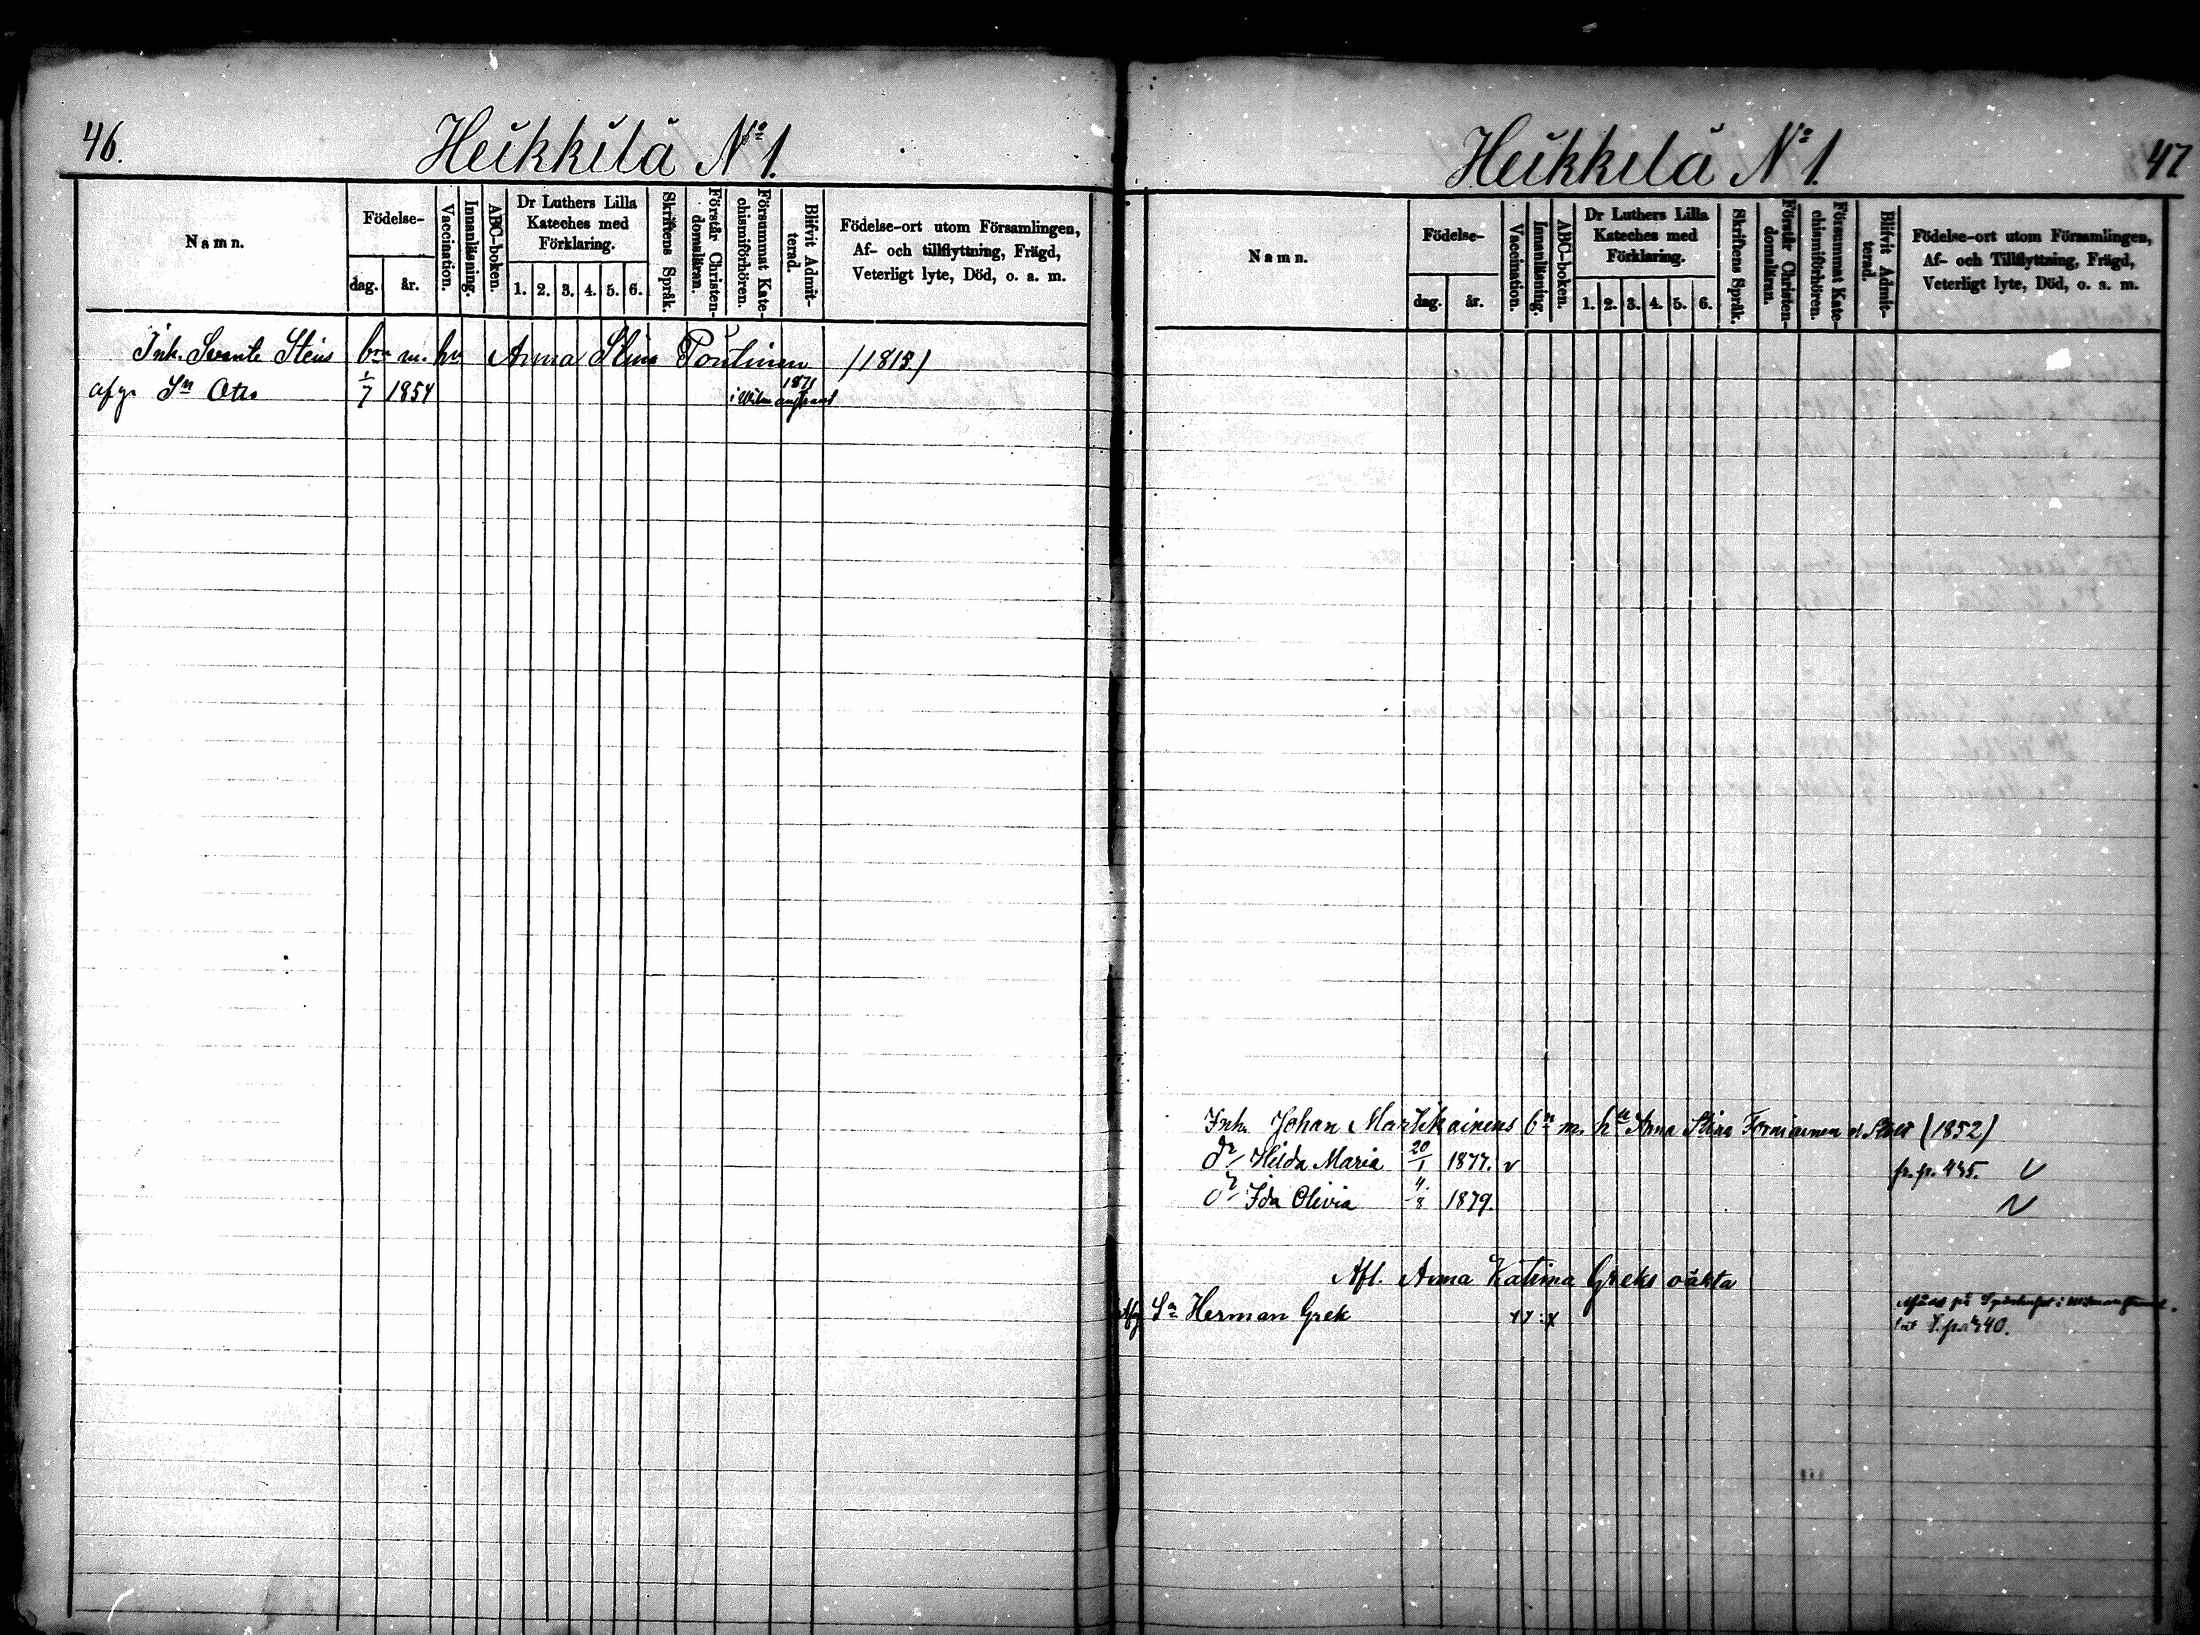 46.
Heikkilä No 1.
Namn.
Födelse-
dag.
år.
Vaccination.
Innanläsning.
ABC-boken.
Dr Luthers Lilla
Kateches med
Förklaring.
1. 2. 3. 4. 5. 6.
Skriftens Språk.
Förstår Christen-
domsläran.
Försummat Kate-
chismiförhören.
Blifvit Admit-
terad.
Födelse-ort utom Församlingen,
Af- och tillflyttning, Frägd,
Veterligt lyte, Död, o. a. m.
Inh. Svante Steius brn m. hu Anna Stina Poutinen (1813)
1871
afgr Sn Otto 1/7 1854 i Wilmanstrand
47
Heikkilä No 1.
Namn.
Födelse-
dag.
år.
Vaccination.
Innanläsning.
ABC-boken.
Dr Luthers Lilla
Kateches med
Förklaring.
1. 2. 3. 4. 5. 6.
Skriftens Språk.
Förstår Christen-
domsläran.
Försummat Kate-
chismiförhören.
Blifvit Admit-
terad.
Födelse-ort utom Församlingen,
Af- och Tillflyttning, Frägd,
Veterligt lyte, Död, o. a. m.
Inh. Johan Martikainens bn m. hu Anna Stina (1852)
dr Hilda Maria 20/1 1877. v fr. p. 435. v
dr Ida Olivia 4/8 1879.
Afl. Anna Katrina Greks oäkta
Sn Herman Grek i Wilmanstrand.